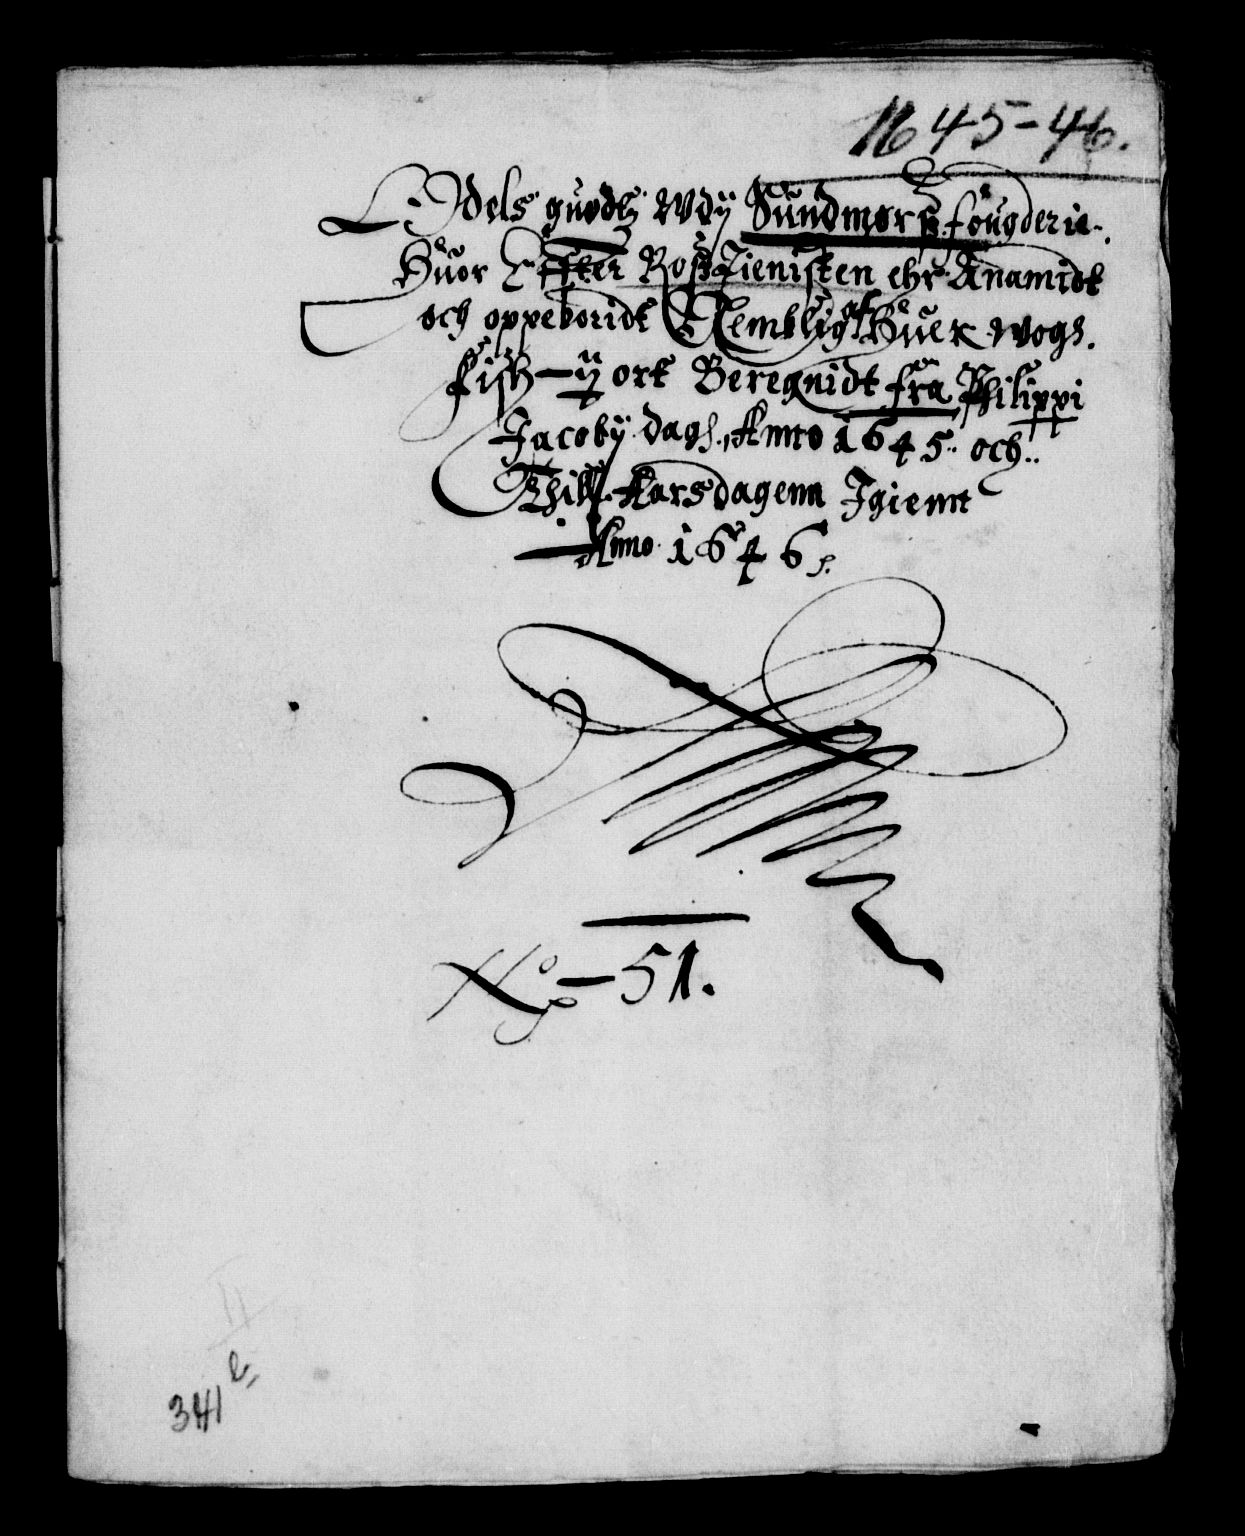 1645-46.
Odels guodtz Wdÿ Sŭndmørs fougderie.
Hŭor Effter Rostienisten ehr Anamidt
och oppeboridt Nembligh af Hŭer Wogs.
Fisk - ÿ ort Beregnidt fra Philippi
Jacobÿ dags. Anno 1645. och..
Thill Aarsdagenn Igienn
Anno 1646.
No - 51.
341
2,